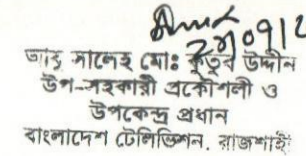 আবু সালেহ মোঃ কুতুব উদ্দীন
উপ-সহকারী প্রকৌশলী ও
উপকেন্দ্র প্রধান
বাংলাদেশ টেলিভিশন, রাজশাহী